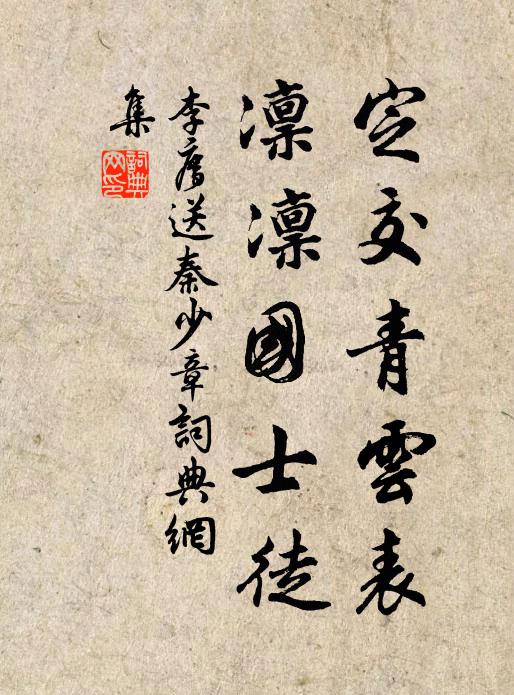 定交青雲表
凛凛國士徒
李廌送秦少章詞典網
集
詞典網印